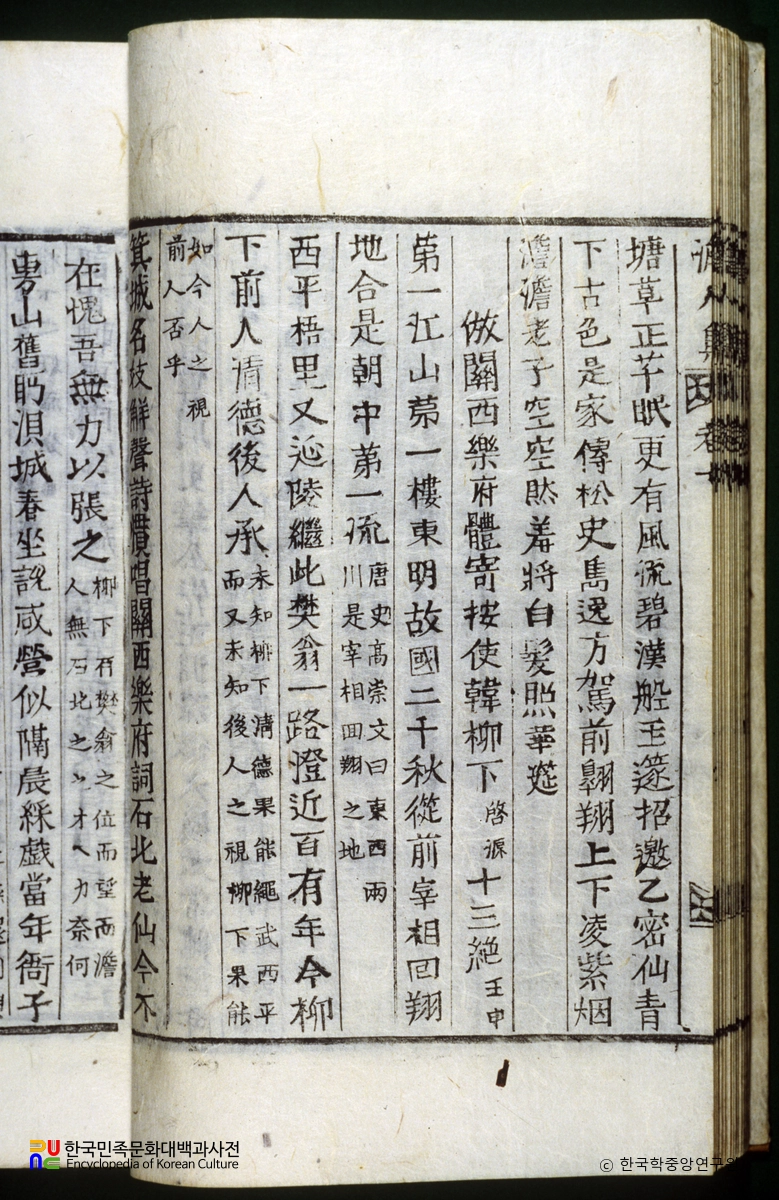 澹人集 卷十
塘草正芊眠更有風流碧漢船玉篴招邀乙密仙青
下古色是家傳松史雋逸方駕前翺翔上下凌紫烟
澹澹老子空空然羞將白髮照華筵
倣關西樂府體寄按使韓柳下啓源十三絶壬申
第一江山第一樓東明故國二千秋從前宰相回翔
地合是朝中第一流唐史高崇文曰東西兩川是宰相回翔之地
西平梧里又延陵繼此樊翁一路澄近百有年今柳
下前人淸德後人承未知柳下淸德果能繩武西平而又未知後人之視柳下果能
如今人之視前人否乎
箕城名妓解聲詩慣唱關西樂府詞石北老仙今不
在愧吾無力以張之柳下有樊翁之位而望而澹人無石北之之才之力奈何
專山舊眄浿城春坐說咸營似隔晨綵戱當年衙子
한국민족문화대백과사전
Encyclopedia of Korean Culture
© 한국학중앙연구원